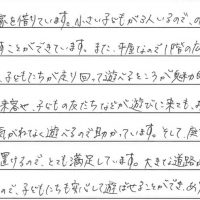 家を借りています。小さい子どもが3人いるので、の
ことができています。また、平屋なので1階の広
、子どもたちが走り回って遊べるところが魅力的
来客や、子どもの友だちなどが遊びに来ても、
気がねなく遊べるので助かっています。そして、庭
置けるので、とても満足しています。大きな道路か
ので、子どもたちも安心して遊ばせることができ、あり